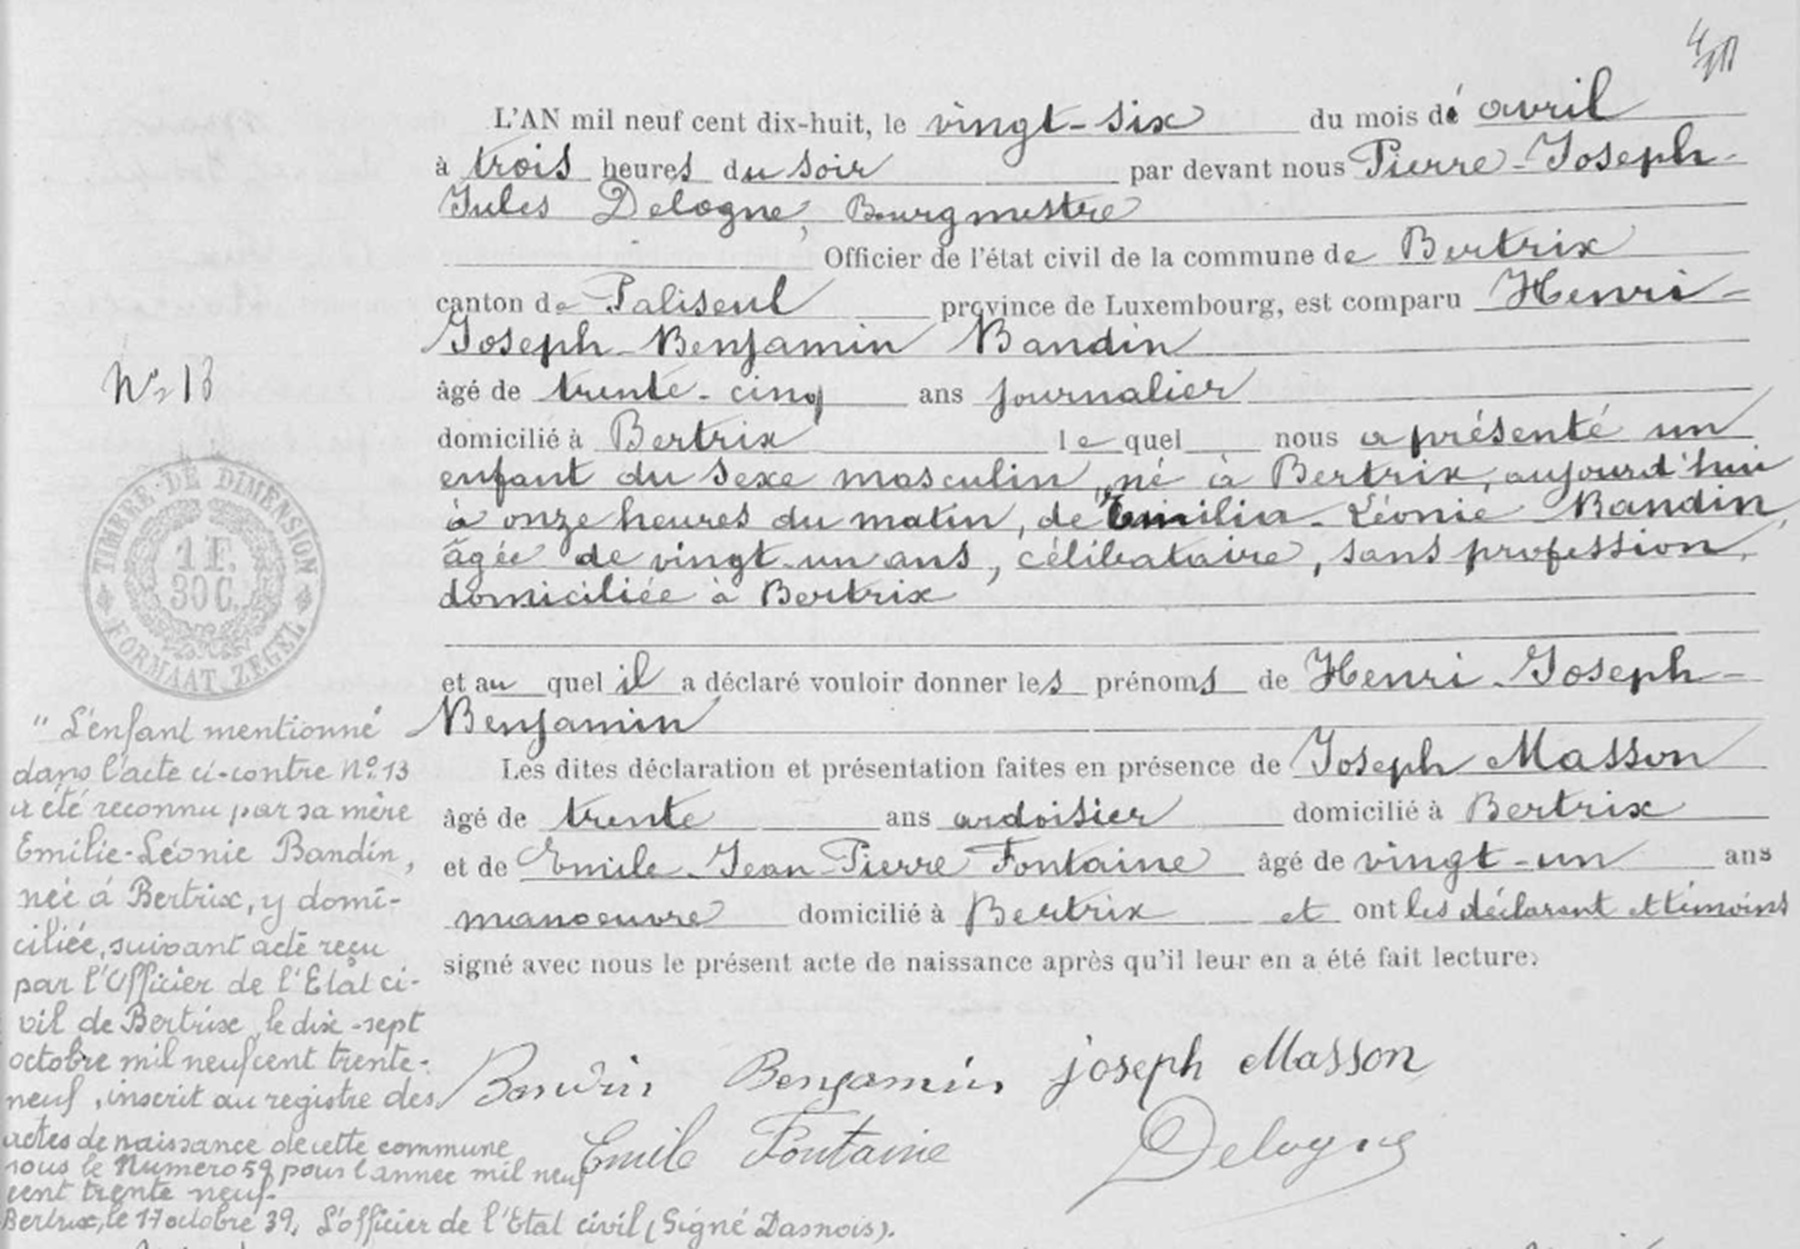 L'AN mil neuf cent dix-huit, le vingt-six du mois de avril
à trois heures du soir par devant nous Pierre-Joseph-
Jules Delogne, Bourgmestre
Officier de l'état civil de la commune de Bertrix
canton de Paliseul province de Luxembourg, est comparu Henri-
Joseph-Benjamin Bandin
âgé de trente-cinq ans journalier
domicilié à Bertrix lequel nous a présenté un
enfant du sexe masculin, né à Bertrix, aujourd'hui
à onze heures du matin, de Emilie-Léonie Bandin,
âgée de vingt-un ans, célibataire, sans profession,
domiciliée à Bertrix
et auquel il a déclaré vouloir donner les prénoms de Henri-Joseph-
Benjamin
Les dites déclaration et présentation faites en présence de Joseph Masson
âgé de trente ans ardoisier domicilié à Bertrix
et de Emile-Jean-Pierre Fontaine âgé de vingt-un ans
manoeuvre domicilié à Bertrix et ont les déclarant et témoins
signé avec nous le présent acte de naissance après qu'il leur en a été fait lecture.
Bandin Benjamin Joseph Masson
Emile Fontaine Delogne
No 13
TIMBRE DE DIMENSION
1 F.
30 C.
FORMAAT ZEGEL
"L'enfant mentionné
dans l'acte ci-contre No. 13
a été reconnu par sa mère
Emilie-Léonie Bandin,
née à Bertrix, y domi-
ciliée, suivant acte reçu
par l'Officier de l'Etat ci-
vil de Bertrix, le dix-sept
octobre mil neuf cent trente-
neuf, inscrit au registre des
actes de naissance de cette commune
sous le Numero 59 pour l'année mil neuf
cent trente neuf.
Bertrix, le 17 octobre 39. L'officier de l'Etat civil (Signé Dasnois).